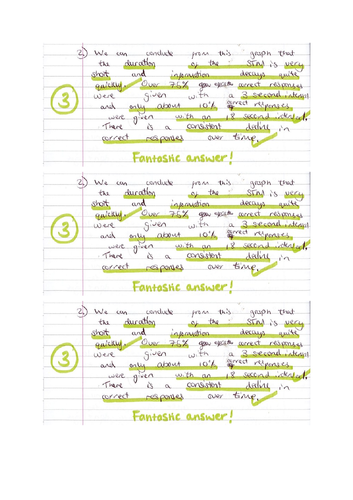 2) We can conclude from this graph that
the duration of the STM is very
short and information decays quite
quickly. Over 75% correct responses
were given with a 3 second interval
and only about 10% correct responses
were given with an 18 second interval.
There is a consistent decline in
correct responses over time.
3
Fantastic answer!
2) We can conclude from this graph that
the duration of the STM is very
short and information decays quite
quickly. Over 75% correct responses
were given with a 3 second interval
and only about 10% correct responses
were given with an 18 second interval.
There is a consistent decline in
correct responses over time.
3
Fantastic answer!
2) We can conclude from this graph that
the duration of the STM is very
short and information decays quite
quickly. Over 75% correct responses
were given with a 3 second interval
and only about 10% correct responses
were given with an 18 second interval.
There is a consistent decline in
correct responses over time.
3
Fantastic answer!